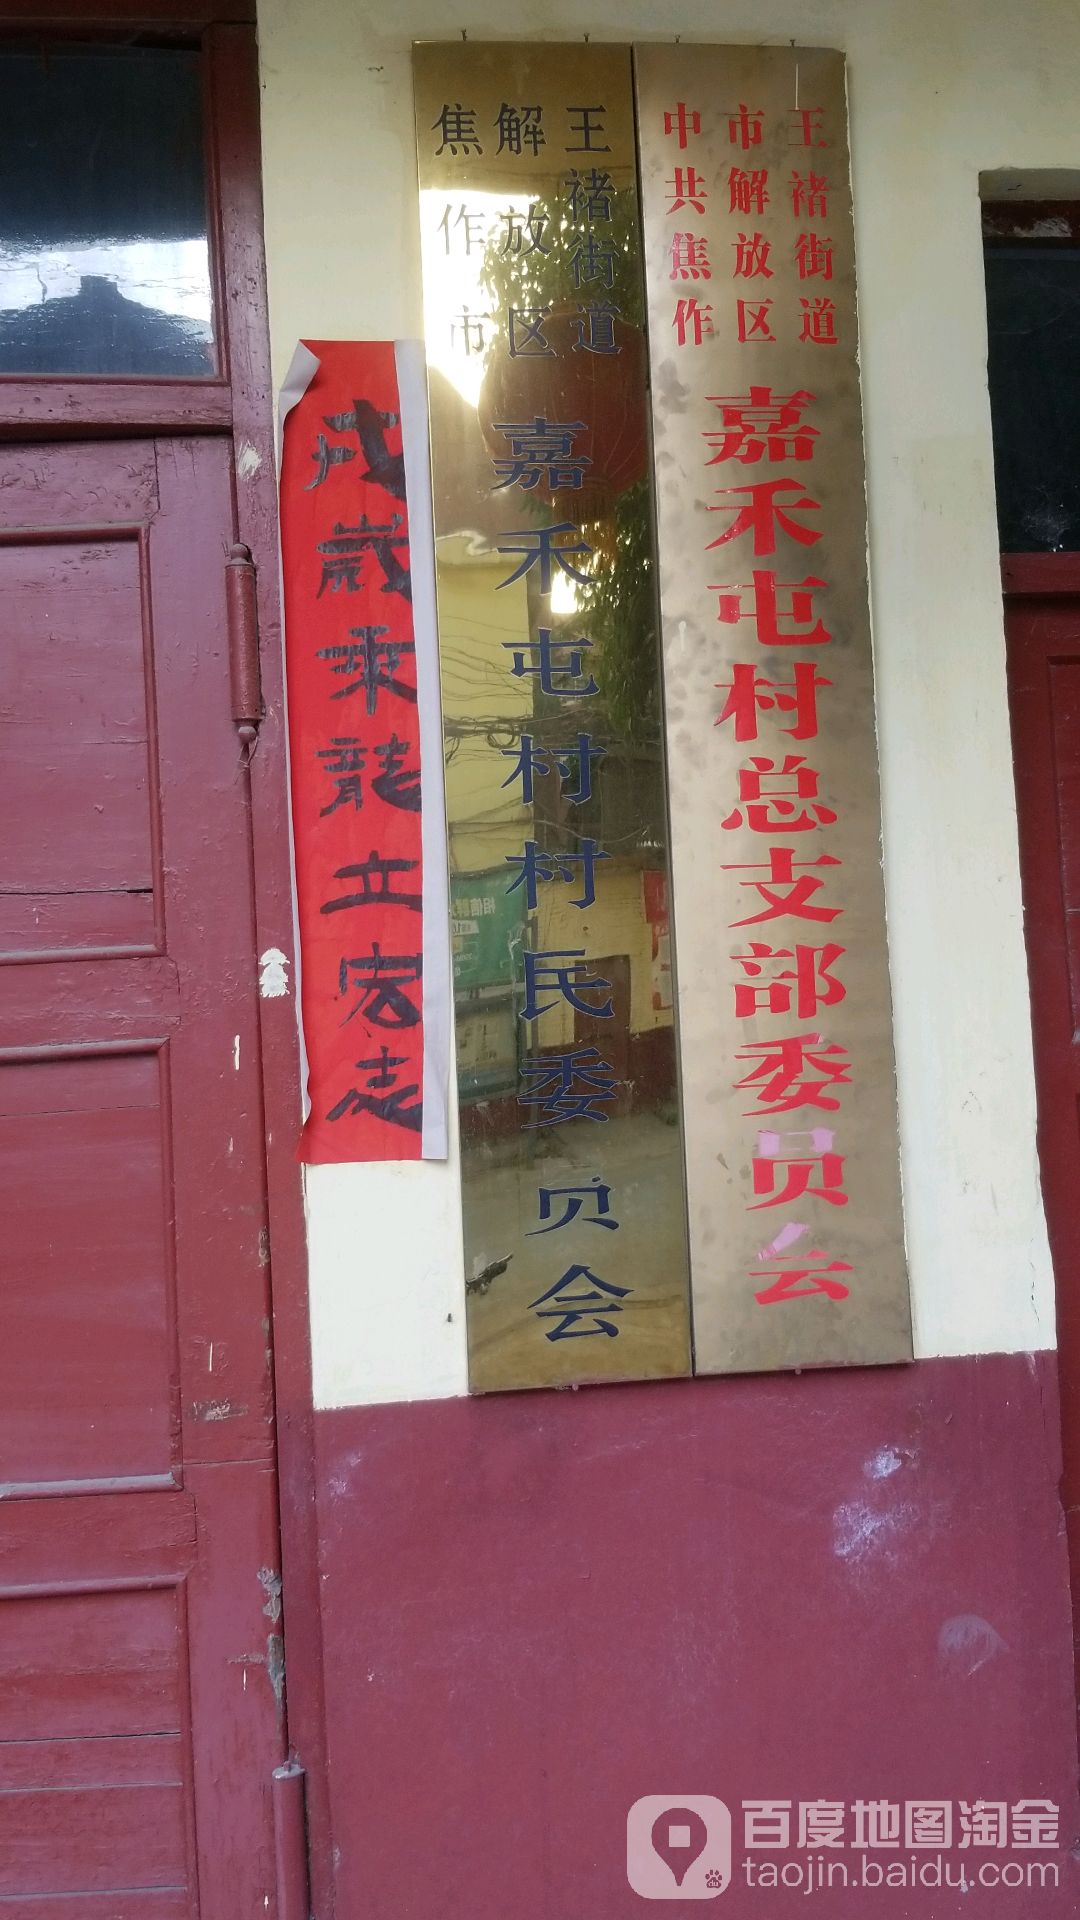 戌歲乘龍立宏志
焦作市
解放区
王褚街道
嘉禾屯村村民委员会
中共焦作
市解放区
王褚街道
嘉禾屯村总支部委员会
百度地图淘金
taojin.baidu.com